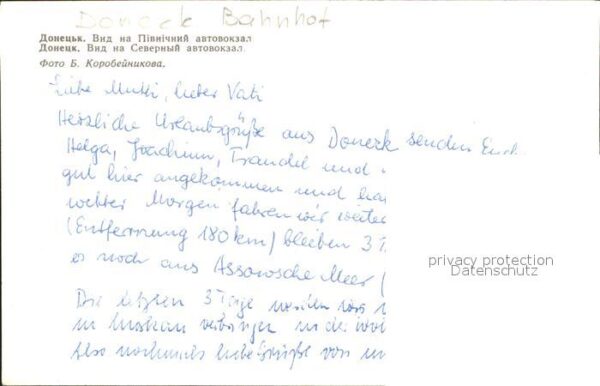 Doneck Bahnhof
Донецьк. Вид на Північний автовокзал
Донецк. Вид на Северный автовокзал.
Фото Б. Коробейникова.
Liebe Mutti, lieber Vati
Herzliche Urlaubsgrüße aus Doneck senden Euch
Helga, Joachim, Traudel und
gut hier angekommen und
Morgen fahren wir weiter
(Entfernung 180 km) bleiben 3 T
es noch ans Assowsche Meer (
privacy protection
Datenschutz
Die letzten 3 Tage werden wir
in Moskau verbringen
Also nochmals liebe Grüße von